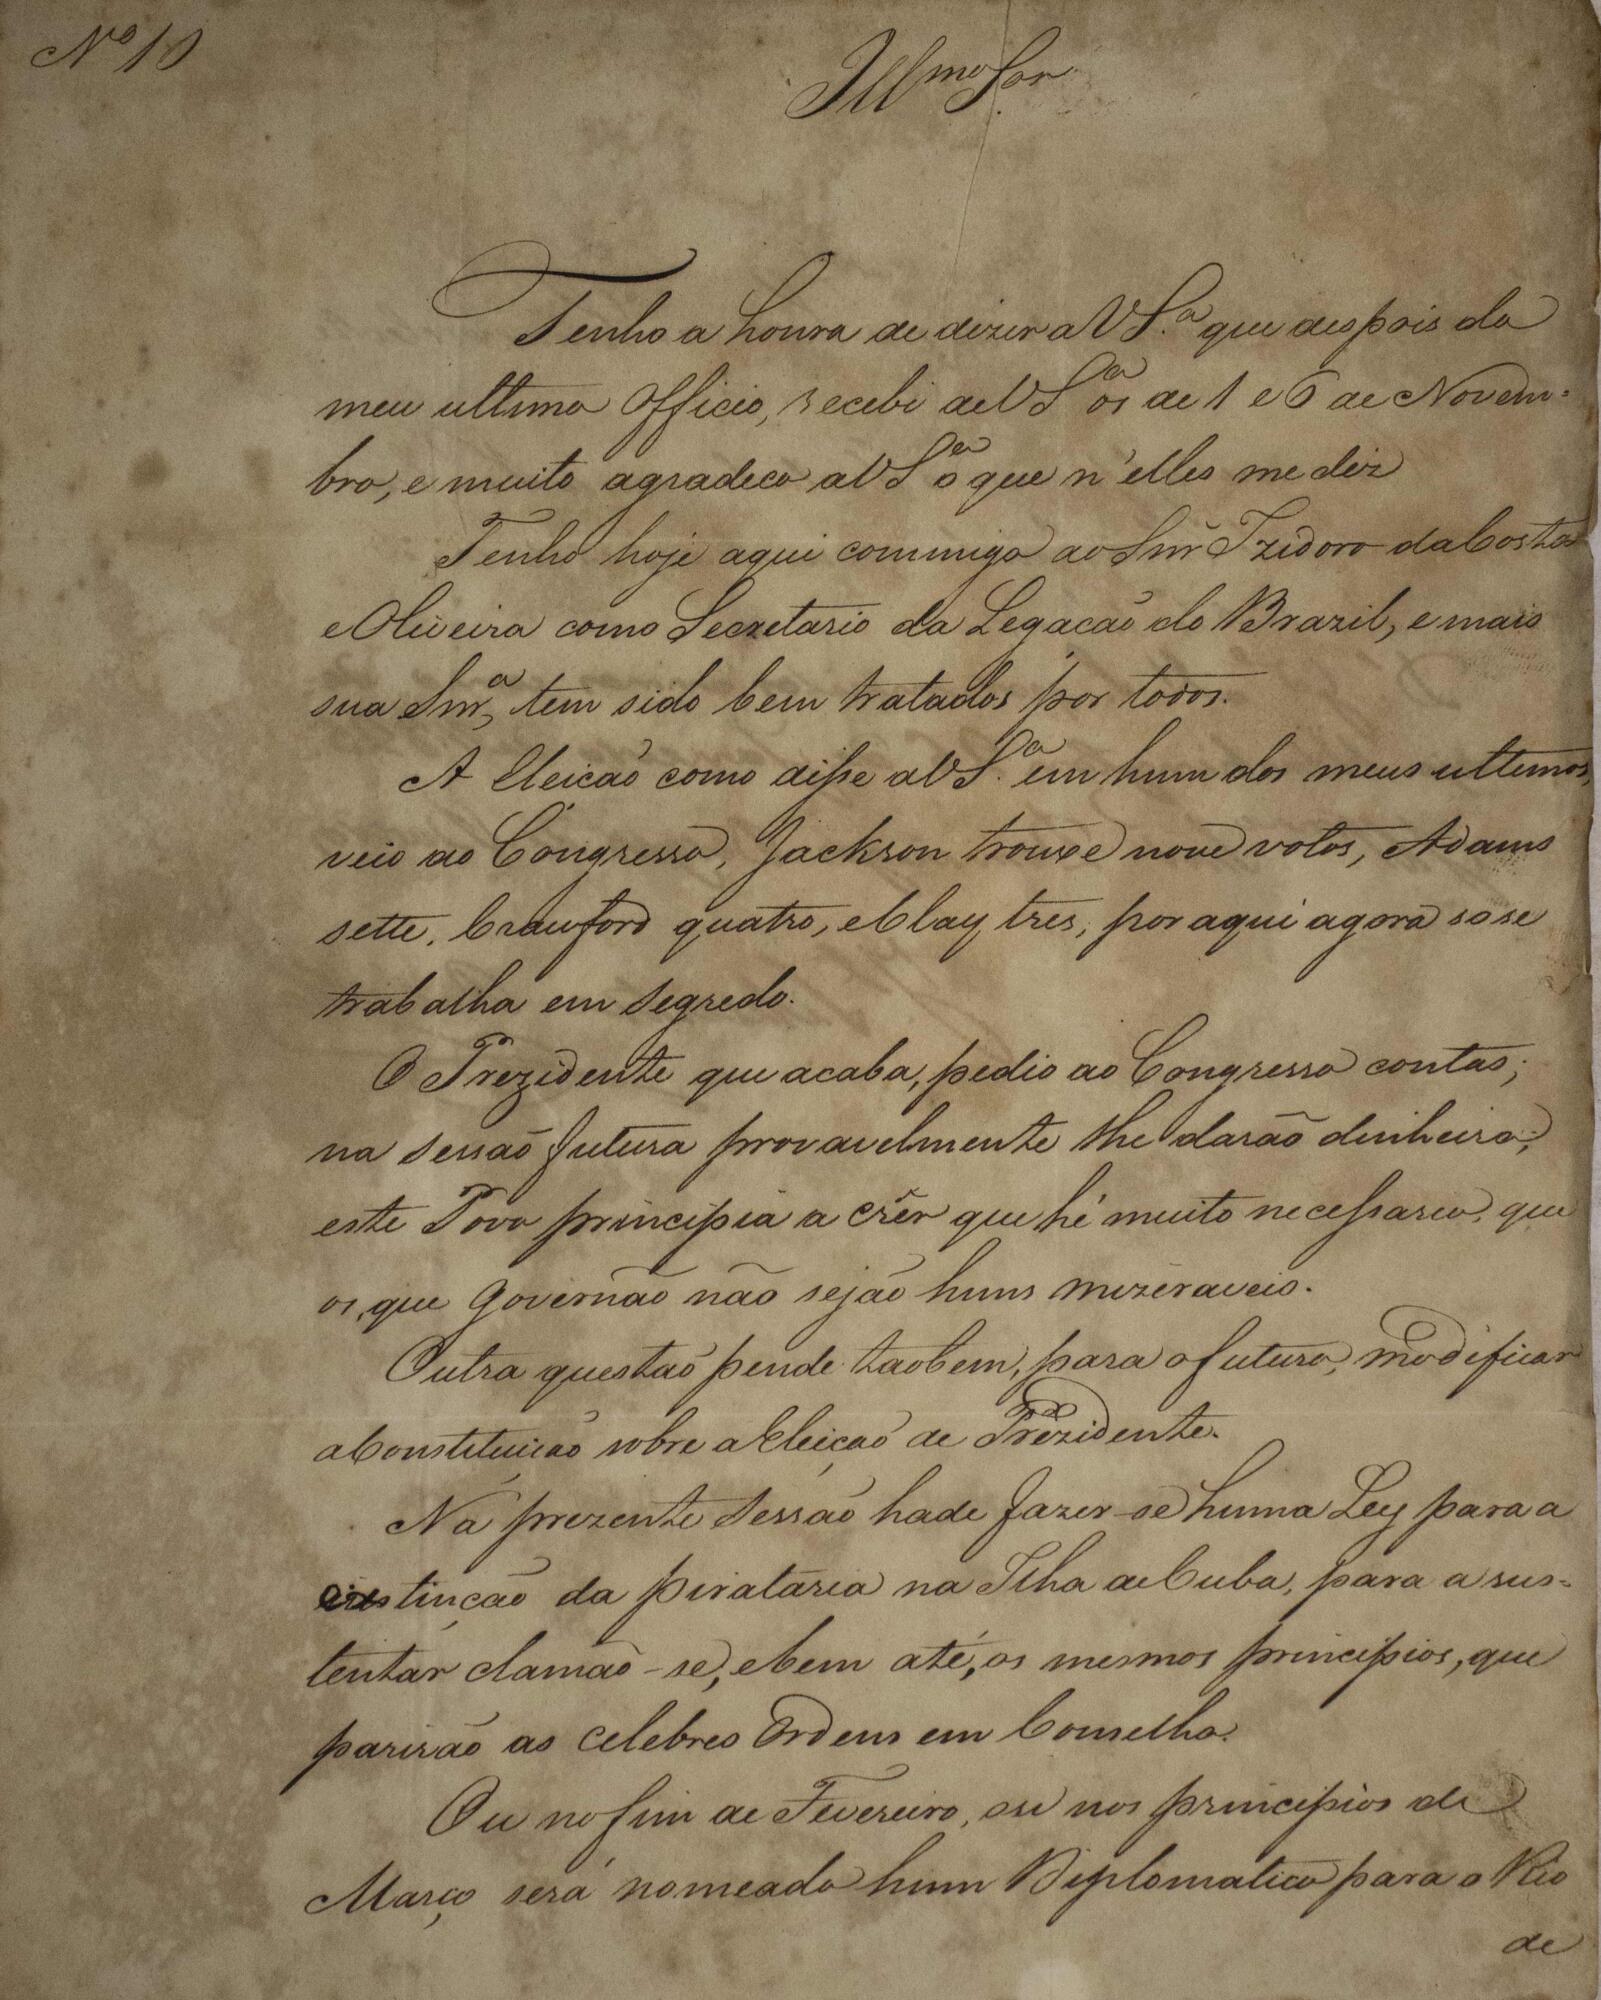 Nº 10
Illmo Snr
Tenho a honra de dizer a V S.ª que despois do
meu ultimo Officio, recebi de V Sª os de 1 e 6 de Novem=
bro, e muito agradeco a V Sª o que n'elles me diz
Tenho hoje aqui commigo ao Snr Izidoro da Costa
e Oliveira como Secretario da Legacão do Brazil, e mais
sua Snrª, tem sido bem tratados por todos.
A Eleicão como disse a V S.ª em hum dos meus ultimos,
veio ao Congresso, Jackson trouxe nove votos, Adams
sette, Crawford quatro, e Clay tres; por aqui agora so se
trabalha em segredo.
O Prezidente que acaba, pedio ao Congresso contas;
na sessão futura provavelmente lhe darão dinheiro;
este Povo principia a crêr que hé muito necessario, que
os, que governão não sejão huns mizeraveis.
Outra questão pende taobem, para o futuro, modificar
a Constituicão sobre a Eleição de Prezidente.
Na prezente Sessão hade fazer-se huma Ley para a
exstinção da pirataria na Ilha de Cuba, para a sus=
tentar clamão-se, e bem até, os mesmos principios, que
parirão as celebres Ordens em Conselho.
Ou no fim de Fevereiro, ou nos principios de
Março será nomeado hum Diplomatico para o Rio
de